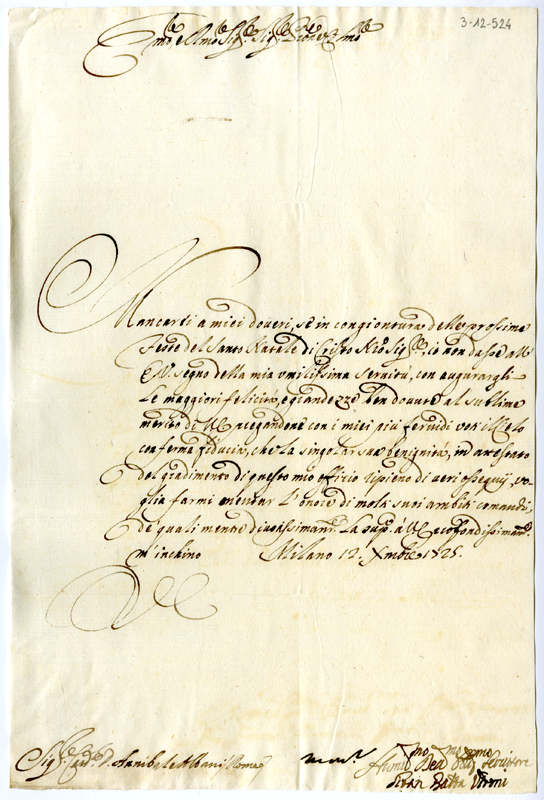 3-12-524
Em̃o e Rmõ Sig.re Sig.re Pron̄e Colm̄o
Mancarei a miei doveri, se in congiontura delle prossime
Feste del Santo Natale di Cristo N̄ro Sig.re, io non dassi all'
E.V. segno della mia umilissima servitù, con augurargli
le maggiori felicità, e grandezze ben dovute al sublime
merito di V.E. pregandone con i miei più fervidi voti il Cielo
con ferma fiducia, che la singolar sua benignità, in attestato
del gradimento di questo mio offizio ripieno di veri ossequij, vo-
glia farmi meritar l'onore di molti suoi ambiti comandi,
de quali mentre divotissimam.te La sup.co à V.E. profondissimam.te
m'inchino Milano 12. Xmbre 1725.
VE
Sig.re Card.le D. Annibale Albani Roma
Hum.mo Dev.mo Obbl. Servitore
Gioan Batta